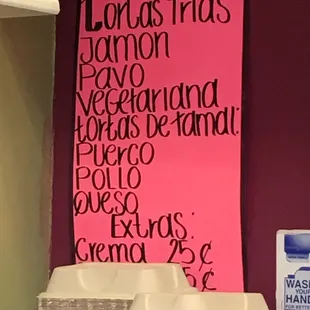 Tortas Frias
Jamon
Pavo
Vegetariana
tortas De tamal:
Puerco
Pollo
Queso
Extras:
Crema 25¢
5¢
WASH
YOUR
HAND
FOR BETTER